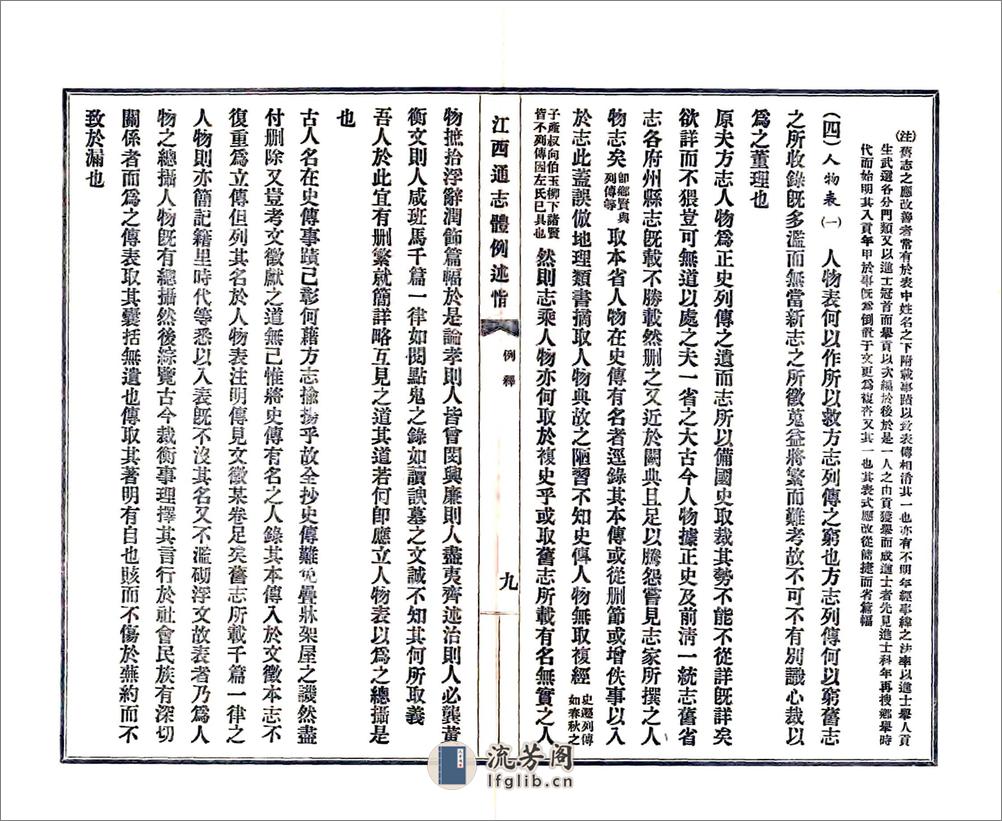 (注)舊志之應改善者常有於表中姓名之下附載事蹟以致表傳相淆其一也亦有不明年經事緯之法率以進士舉人貢
生武選各分門類又以進士冠首而舉貢以次編於後於是一人之由貢獲舉而成進士者先見進士科年再搜鄉舉時
代而始明其入貢年甲於事既爲倒置于文更爲複沓又其一也其表式應改從簡捷而省篇幅
(四)人物表(一) 人物表何以作所以救方志列傳之窮也方志列傳何以窮舊志
之所收錄既多濫而無當新志之所徵蒐益將繁而難考故不可不有別識心裁以
爲之董理也
原夫方志人物爲正史列傳之遺而志所以備國史取裁其勢不能不從詳既詳矣
欲詳而不猥豈可無道以處之夫一省之大古今人物據正史及前淸一統志舊省
志各府州縣志既載不勝載然删之又近於闕典且足以騰怨嘗見志家所撰之人
物志矣卽鄉賢與列傳等取本省人物在史傳有名者逕錄其本傳或從删節或增佚事以入
於志此蓋誤倣地理類書摘取人物典故之陋習不知史傳人物無取複經史遷列傳如春秋之
子產叔向伯玉柳下諸賢皆不列傳因左氏已具也然則志乘人物亦何取於複史乎或取舊志所載有名無實之人
江西通志體例述恉
例釋
九
物摭拾浮辭潤飾篇幅於是論孝則人皆曾閔興廉則人盡夷齊述治則人必龔黃
衡文則人咸班馬千篇一律如閱點鬼之錄如讀諛墓之文誠不知其何所取義
吾人於此宜有删繁就簡詳略互見之道其道若何卽應立人物表以爲之總攝是
也
古人名在史傳事蹟已彰何藉方志揄揚乎故全抄史傳難免疊牀架屋之譏然盡
付删除又豈考文徵獻之道無已惟將史傳有名之人錄其本傳入於文徵本志不
復重爲立傳但列其名於人物表注明傳見文徵某卷足矣舊志所載千篇一律之
人物則亦簡記籍里時代等悉以入表既不沒其名又不濫砌浮文故表者乃爲人
物之總攝人物既有總攝然後綜覽古今裁衡事理擇其言行於社會民族有深切
關係者而爲之傳表取其囊括無遺也傳取其著明有自也賅而不傷於蕪約而不
致於漏也
流芳阁
lfglib.cn